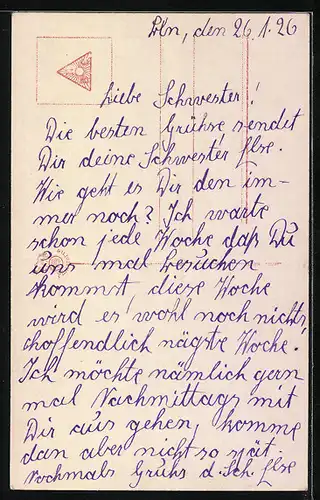 Bln, den 26.1.26
Liebe Schwester!
Die besten Grühse sendet
Dir deine Schwester Else.
Wie geht es Dir den im-
mer noch? Ich warte
schon jede Woche daß Du
uns mal besuchen
kommst diese Woche
wird es wohl noch nichts
hoffendlich nägste Woche.
Ich möchte nämlich gern
mal Nachmittags mit
Dir aus gehen, komme
dan aber nicht so spät.
Nochmals Gruhs d. Sch. Else